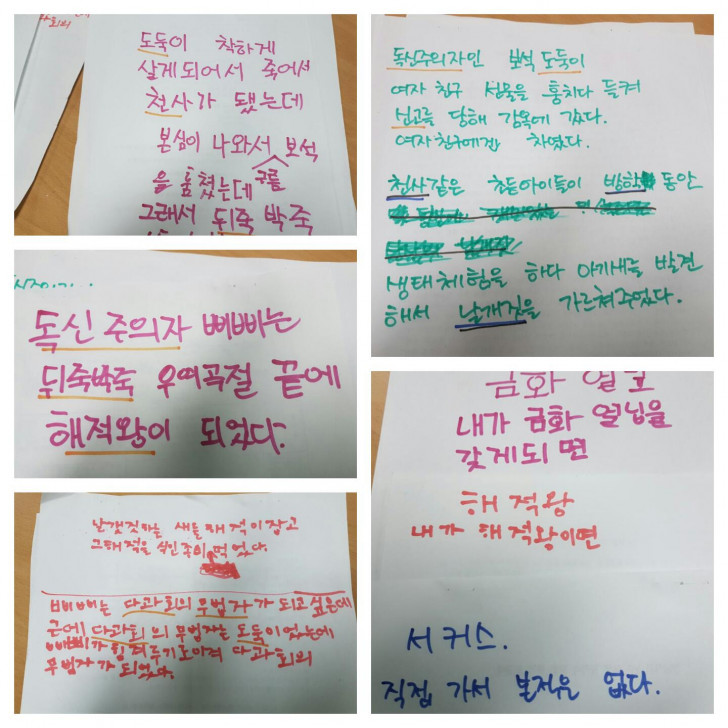 도둑이 착하게
살게되어서 죽어서
천사가 됐는데
본심이 나와서 보석
구름
을 훔쳤는데
그래서 뒤죽 박죽
독신주의자 삐삐는
뒤죽박죽 우여곡절 끝에
해적왕이 되었다.
날갯짓하는 새를 해적이 잡고
그해적을 식인종이 먹었다.
삐삐는 다과회의 무법자가 되고싶은데
근데 다과회의 무법자는 도둑이었는데
무법자가 되었다.
독신주의자인 보석 도둑이
여자친구 선물을 훔치다 들켜
신고를 당해 감옥에 갔다.
여자친구에게 차였다.
천사같은 초등아이들이 방학 동안
생태체험을 하다 아기새를 발견
해서 날개짓을 가르쳐주었다.
금화 열
내가 금화 열닢을
갖게되면
해적왕
내가 해적왕이면
서커스.
직접 가서 본적은 없다.